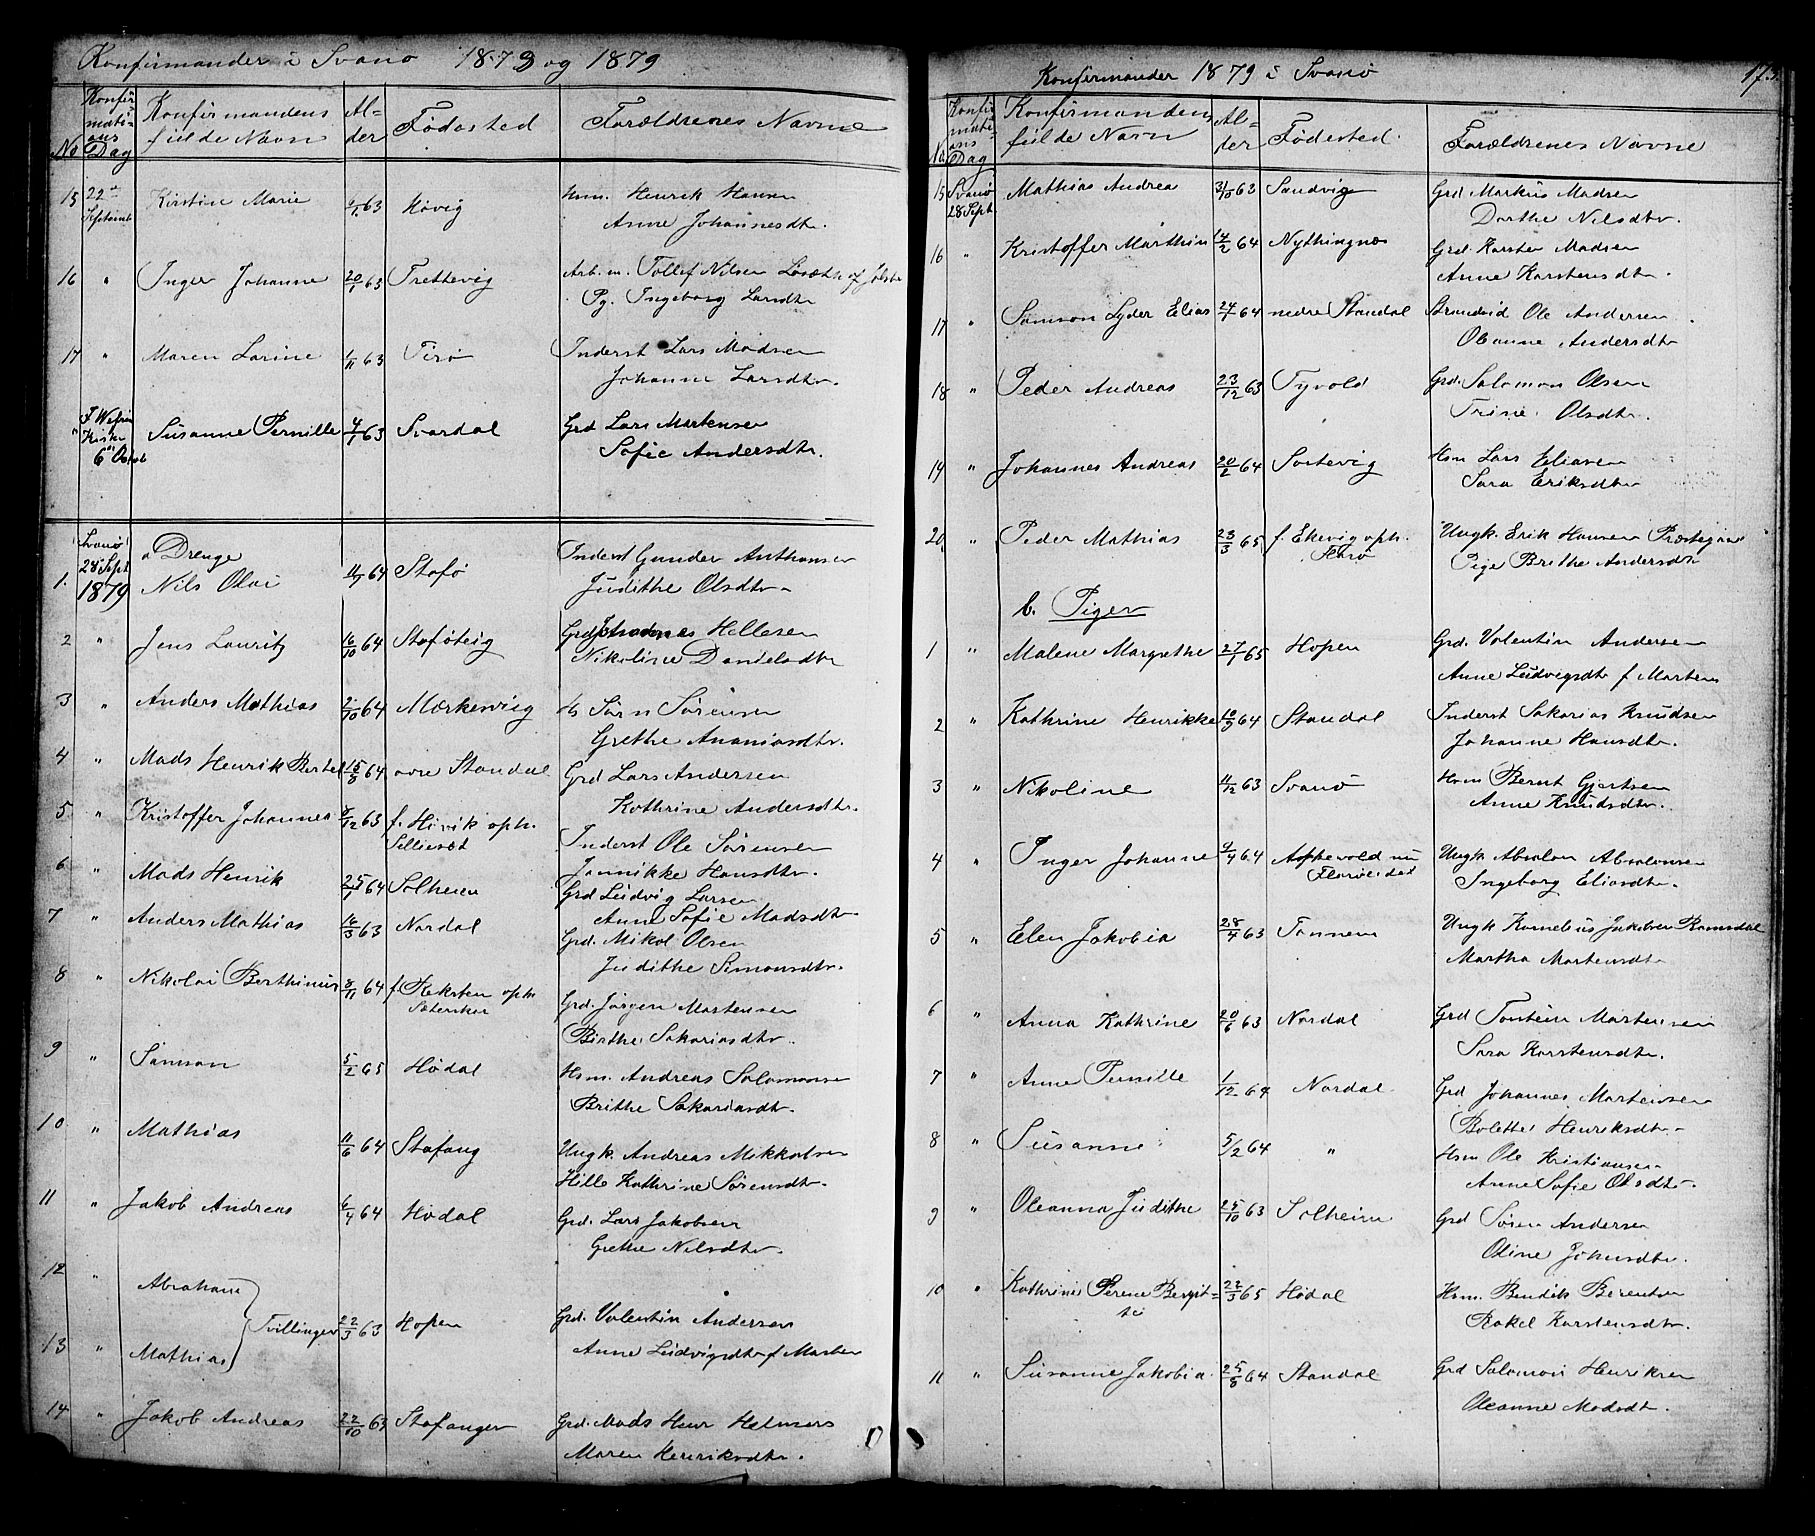 Konfirmander i Svanø 1878 og 1879
No Konfirmations Dag Konfirmandens fulde Navn Alder Fødested Forældrenes Navne
15 22de Septemb Kirstine Marie 63 Høvig Hsm. Henrik Hansen
Anne Johannesdtr.
16 " Inger Johanne 20/1 63 Trettevig Arb.m. Tollef Nilsen af Jølster
Pg. Ingeborg Larsdtr
17 " Maren Larine 1/11 63 Tirø Inderst Lars Madsen
Johanne Larsdtr.
" Kirke 6te Octob Susanne Pernille 4/1 63 Svardal Grd Lars Martensen
Sofie Andersdtr.
Svanø 28 Sept 1879
a Drenge
1. Nils Olai 11/7 64 Stafø Inderst Gunder Anthonsen
Judithe Olsdtr
2 " Jens Lauritz 16/10 64 Staføteig Grd Johannes Hellesen
Nikoline Danielsdtr
3 " Anders Mathias 2/10 64 Mørkevig Hs Sørn Sørensen
Grethe Ananiasdtr.
4 " Mads Henrik Bertel 15/8 64 øvre Standal Grd Lars Andersen
Kathrine Andersdtr.
5 " Kristoffer Johannes /12 63 f. Hivik oph.
Inderst Ole Sørensen
Jannikke Hansdtr.
6 " Mads Henrik 25/1 64 Solheim Grd Ludvig Larsen
Anne Sofie Madsdtr
7 " Anders Mathias 16/3 63 Nordal Grd. Mikol Olsen
Judithe Simonsdtr.
8 " Nikolai Berthinius 3/11 64 f Reksten oph
Grd. Jørgen Martensen
Birthe Sakariasdtr.
9 " Samson 5/2 65 Hødal Hsm. Andreas Salomonsen
Brithe Sakariasdtr.
10 " Mathias 11/6 64 Stafang Ungk. Andreas Mikkelsen
Hille Kathrine Sørensdtr.
11 " Jakob Andreas 6/4 64 Hødal Grd. Lars Jakobsen
Grethe Nilsdtr.
12 " Abraham
Tvillinger 22/3 63 Hopen Grd. Valentin Andersen
13 " Mathias Anne Ludvigsdtr f Marten
14 " Jakob Andreas 22/10 63 Stafanger Grd. Mads Henr Helmers
Maren Henriksdtr.
Konfirmander 1879 i Svanø 173.
No Konfirmations Dag Konfirmandens fulde Navn Alder Fødested Forældrenes Navne
15 Svanø 28 Sept Mathias Andrea 31/10 63 Sandvig Grd Markus Madsen
Dorthe Nilsdtr.
16 " Kristoffer Marthin 14/2 64 Nythingnes Grd. Karsten Madsen
Anne Karstensdtr.
17 " Samson Lyder Elias 24/7 64 nedre Standal Strandsid Ole Andersen
Oleanne Andersdtr
18 " Peder Andreas 23/12 63 Tyvold Grd. Salomon Olsen
Trine Olsdtr.
19 " Johannes Andreas 20/2 64 Sortevig Hsm Lars Eliasen
Sara Eriksdtr
20 " Peder Mathias 23/3 65 f. Ekevig oph. Ungk. Erik Hansen
Pige Brithe Andersdtr
b. Piger
1 " Malene Margrethe 27/1 65 Hopen Grd. Valentin Andersen
Anne Ludvigsdtr f Marten
2 " Kathrine Henrikke 10/9 64 Standal Inderst Sakarias Knudsen
Johanne Hansdtr.
3 " Nikoline 11/12 63 Svanø Hsm Bernt Gjertsen
Anne Knudsdtr.
4 " Inger Johanne 9/4 64 Aphevold nu
Florøeidet
Ungk. Absalon Absalonsen
Ingeborg Eliasdtr.
5 " Elen Jakobia 28/4 63 Tonnem Ungk Kornelius Jakobsen Ramsdal
Martha Martensdtr
6 " Anna Kathrine 20/6 63 Nordal Grd Tostein Martensen
Sara Karstensdtr.
7 " Anne Pernille 1/12 64 Nordal Grd Johannes Martensen
Bolette Henriksdtr
8 " Susanne 5/2 64 " Hsm Ole Kristiansen
Anne Sofie Olsdtr.
9 " Oleanna Judithe 25/10 63 Solheim Grd Søren Andersen
Oline Johansdtr.
10 " Kathrine Perene Bergit=
te
22/3 65 Hødal Hsm. Bendik Berentsen
Rakel Karstensdtr.
11 " Susanne Jakobia 25/8 64 Standal Grd Salomon Henriksen
Oleanne Madsdtr.